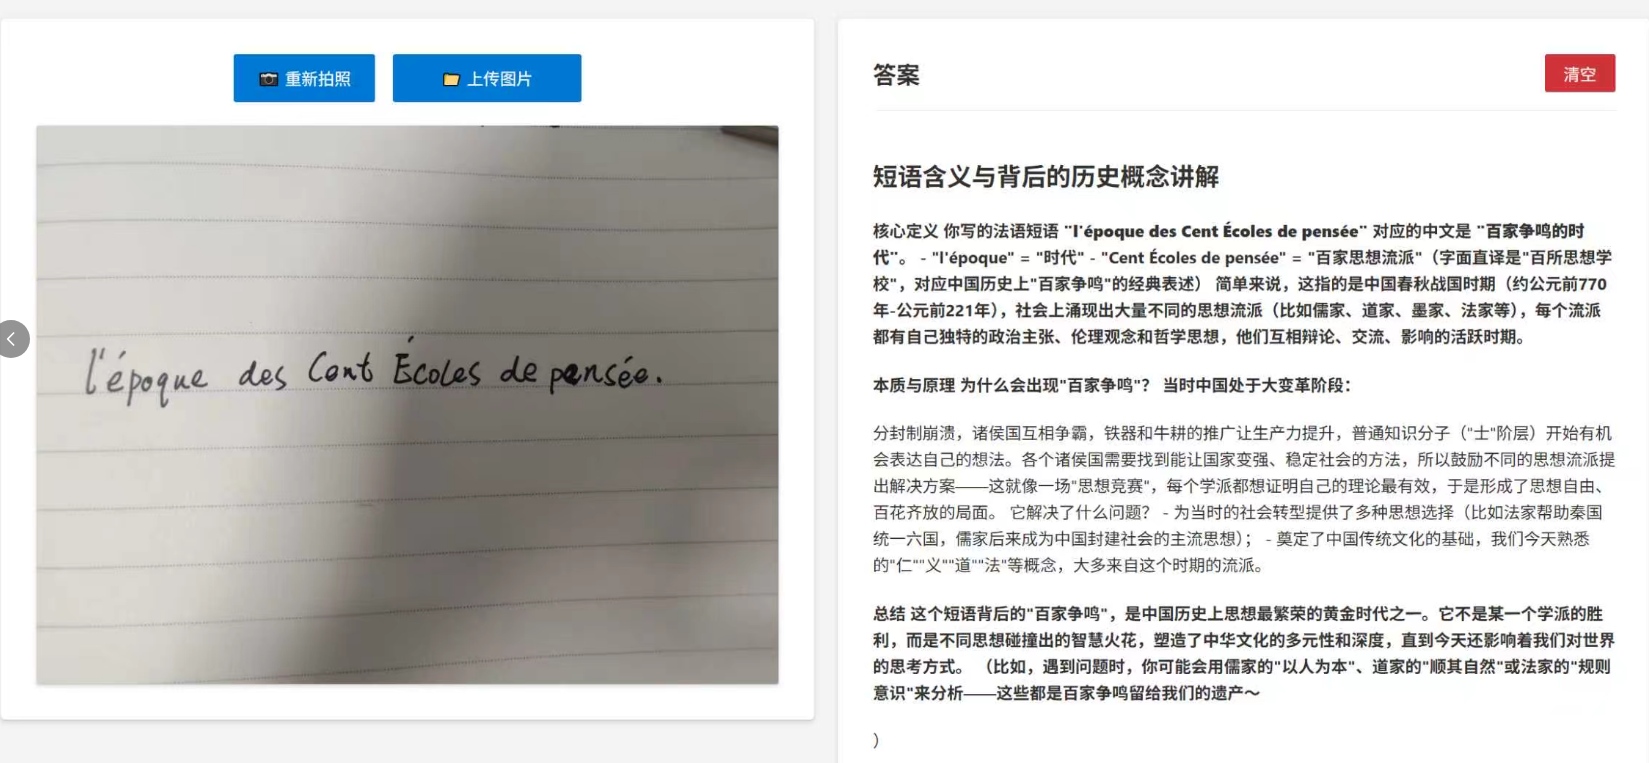 📷 重新拍照
📁 上传图片
l'époque des Cent Écoles de pensée.
答案
清空
短语含义与背后的历史概念讲解
核心定义 你写的法语短语 "l'époque des Cent Écoles de pensée" 对应的中文是 "百家争鸣的时
代"。 - "l'époque" = "时代" - "Cent Écoles de pensée" = "百家思想流派"（字面直译是"百所思想学
校"，对应中国历史上"百家争鸣"的经典表述） 简单来说，这指的是中国春秋战国时期（约公元前770
年-公元前221年），社会上涌现出大量不同的思想流派（比如儒家、道家、墨家、法家等），每个流派
都有自己独特的政治主张、伦理观念和哲学思想，他们互相辩论、交流、影响的活跃时期。
本质与原理 为什么会出现"百家争鸣"？ 当时中国处于大变革阶段：
分封制崩溃，诸侯国互相争霸，铁器和牛耕的推广让生产力提升，普通知识分子（"士"阶层）开始有机
会表达自己的想法。各个诸侯国需要找到能让国家变强、稳定社会的方法，所以鼓励不同的思想流派提
出解决方案——这就像一场"思想竞赛"，每个学派都想证明自己的理论最有效，于是形成了思想自由、
百花齐放的局面。 它解决了什么问题？ - 为当时的社会转型提供了多种思想选择（比如法家帮助秦国
统一六国，儒家后来成为中国封建社会的主流思想）； - 奠定了中国传统文化的基础，我们今天熟悉
的"仁""义""道""法"等概念，大多来自这个时期的流派。
总结 这个短语背后的"百家争鸣"，是中国历史上思想最繁荣的黄金时代之一。它不是某一个学派的胜
利，而是不同思想碰撞出的智慧火花，塑造了中华文化的多元性和深度，直到今天还影响着我们对世界
的思考方式。 （比如，遇到问题时，你可能会用儒家的"以人为本"、道家的"顺其自然"或法家的"规则
意识"来分析——这些都是百家争鸣留给我们的遗产～
）